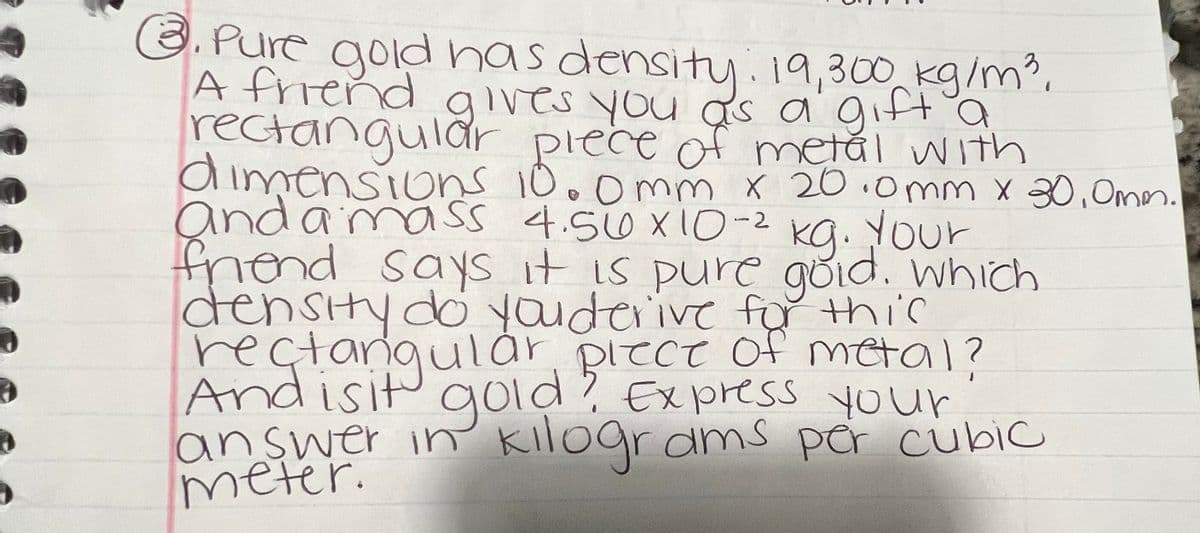 ③. Pure gold has density: 19,300 kg/m³.
A friend gives you as a gift a
rectangular piece of metal with
dimensions 10.0mm x 20.0mm x 30.0mm.
and a mass 4.56 X 10-² kg. Your
friend says it is pure gold. Which
density do you derive for this
rectangular piece of metal?
And is it gold? Express your
answer in kilograms per cubic
meter.